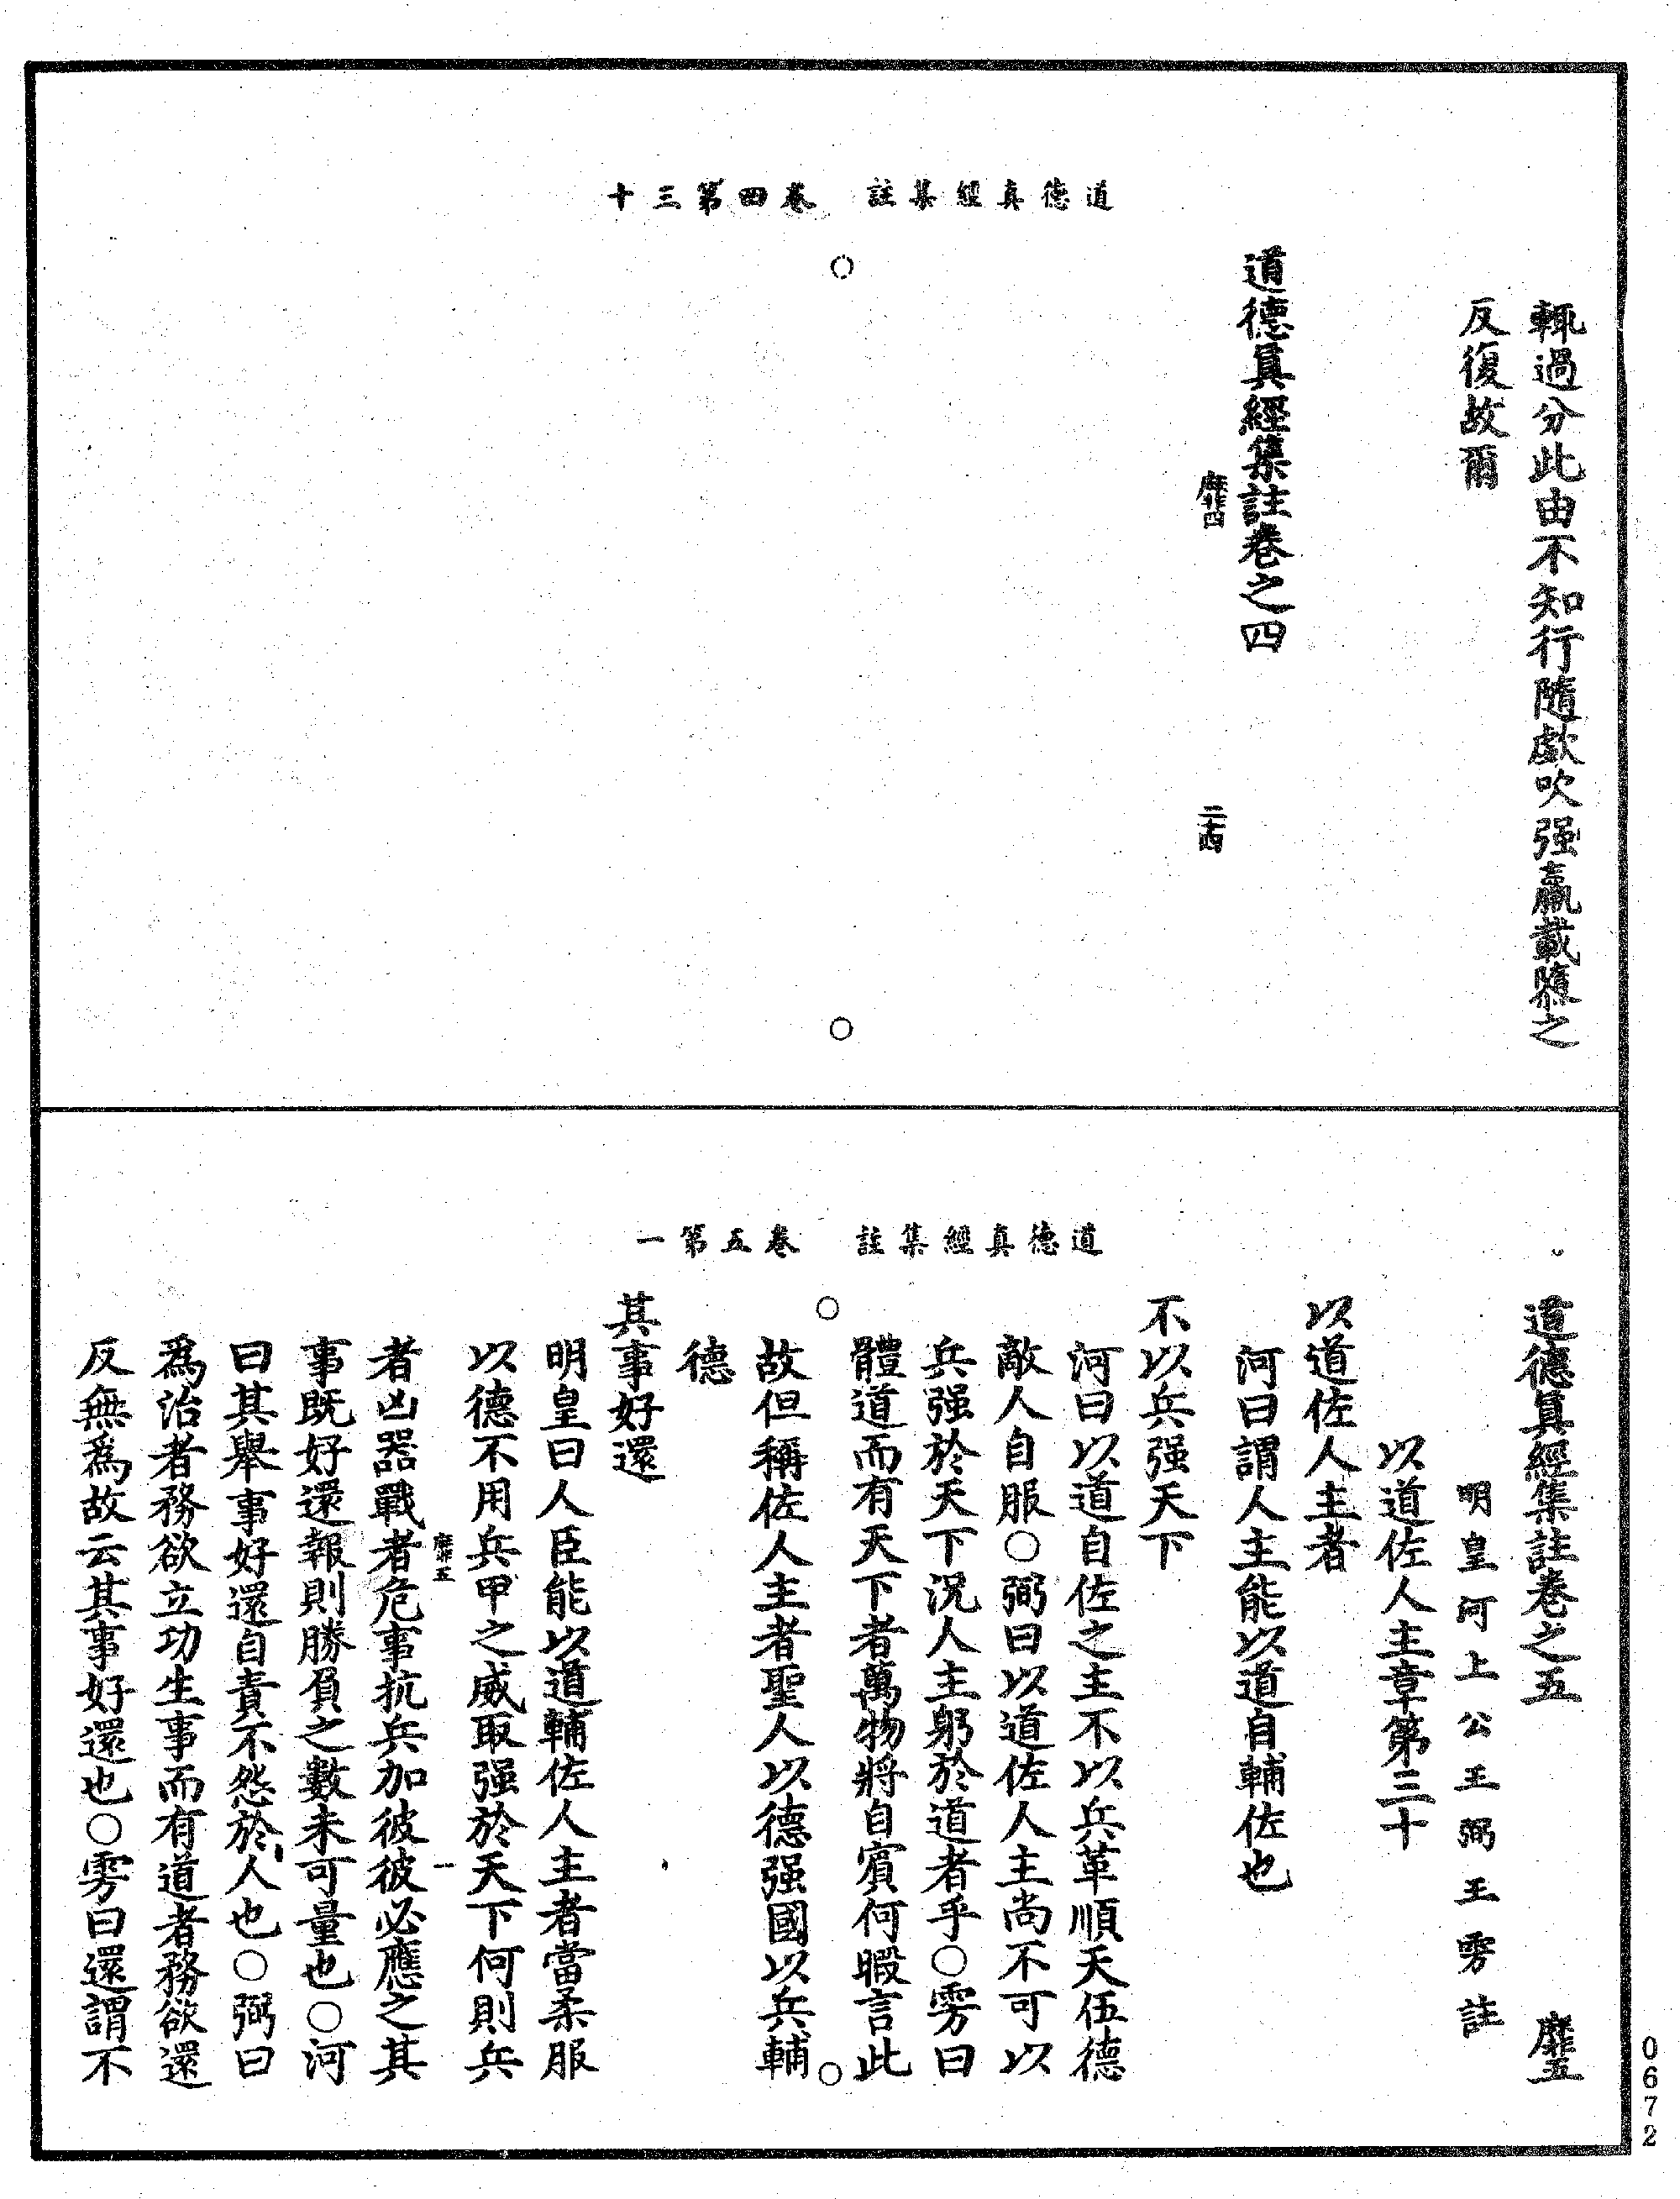 道德真經集註　卷四第三十
輒過分此由不知行隨歔吹强羸載隳之
反復故爾
道德真經集註卷之四
靡四　二十四
道德真經集註　卷五第一
道德真經集註卷之五　靡五
明皇河上公王弼王雱註
以道佐人主章第三十
以道佐人主者
河曰謂人主能以道自輔佐也
不以兵强天下
河曰以道自佐之主不以兵革順天伍德
敵人自服○弼曰以道佐人主尚不可以
兵强於天下况人主躬於道者乎○雱曰
體道而有天下者萬物將自賓何暇言此
故但稱佐人主者聖人以德强國以兵輔
德
其事好還
明皇曰人臣能以道輔佐人主者當柔服
以德不用兵甲之威取强於天下何則兵
靡五　一
者凶器戰者危事抗兵加彼彼必應之其
事既好還報則勝負之數未可量也○河
曰其舉事好還自責不怨於人也○弼曰
爲治者務欲立功生事而有道者務欲還
反無爲故云其事好還也○雱曰還謂不
0672